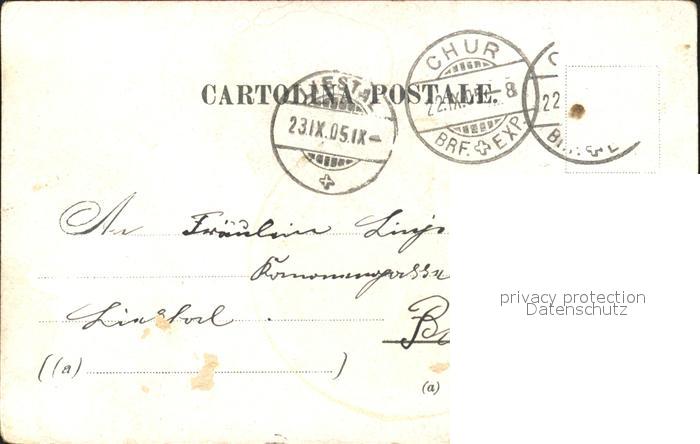 CARTOLINA POSTALE.
LIESTAL
23.IX.05.IX–
CHUR
22.IX. –8
BRF. EXP.
C
22
An Fräulein
Kanonengasse
Liestal.
((a) )
(a)
privacy protection
Datenschutz